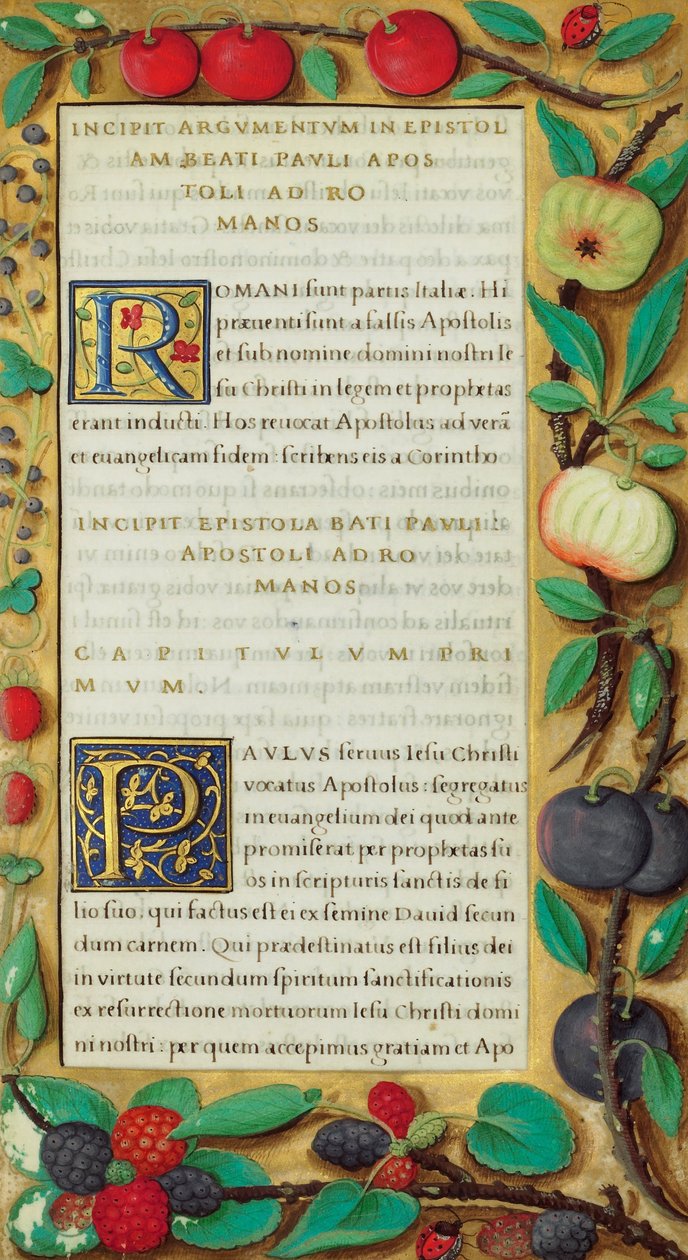 INCIPIT ARGVMENTVM IN EPISTOL
AM BEATI PAVLI APOS
TOLI AD RO
MANOS
ROMANI sunt partis Italiæ. Hi
præuenti sunt a falsis Apostolis
et sub nomine domini nostri Ie
su Christi in legem et prophetas
erant inducti. Hos reuocat Apostolus ad verã
et euangelicam fidem : scribens eis a Corintho
INCIPIT EPISTOLA BATI PAVLI :
APOSTOLI AD RO
MANOS
CAPITVLVM PRI
MVM.
PAULUS seruus Iesu Christi
vocatus Apostolus : segregatus
in euangelium dei quod ante
promiserat per prophetas su
os in scripturis sanctis de fi
lio suo, qui factus est ei ex semine Dauid secun
dum carnem. Qui prædestinatus est filius dei
in virtute secundum spiritum sanctificationis
ex resurrectione mortuorum Iesu Christi domi
ni nostri : per quem accepimus gratiam et Apo